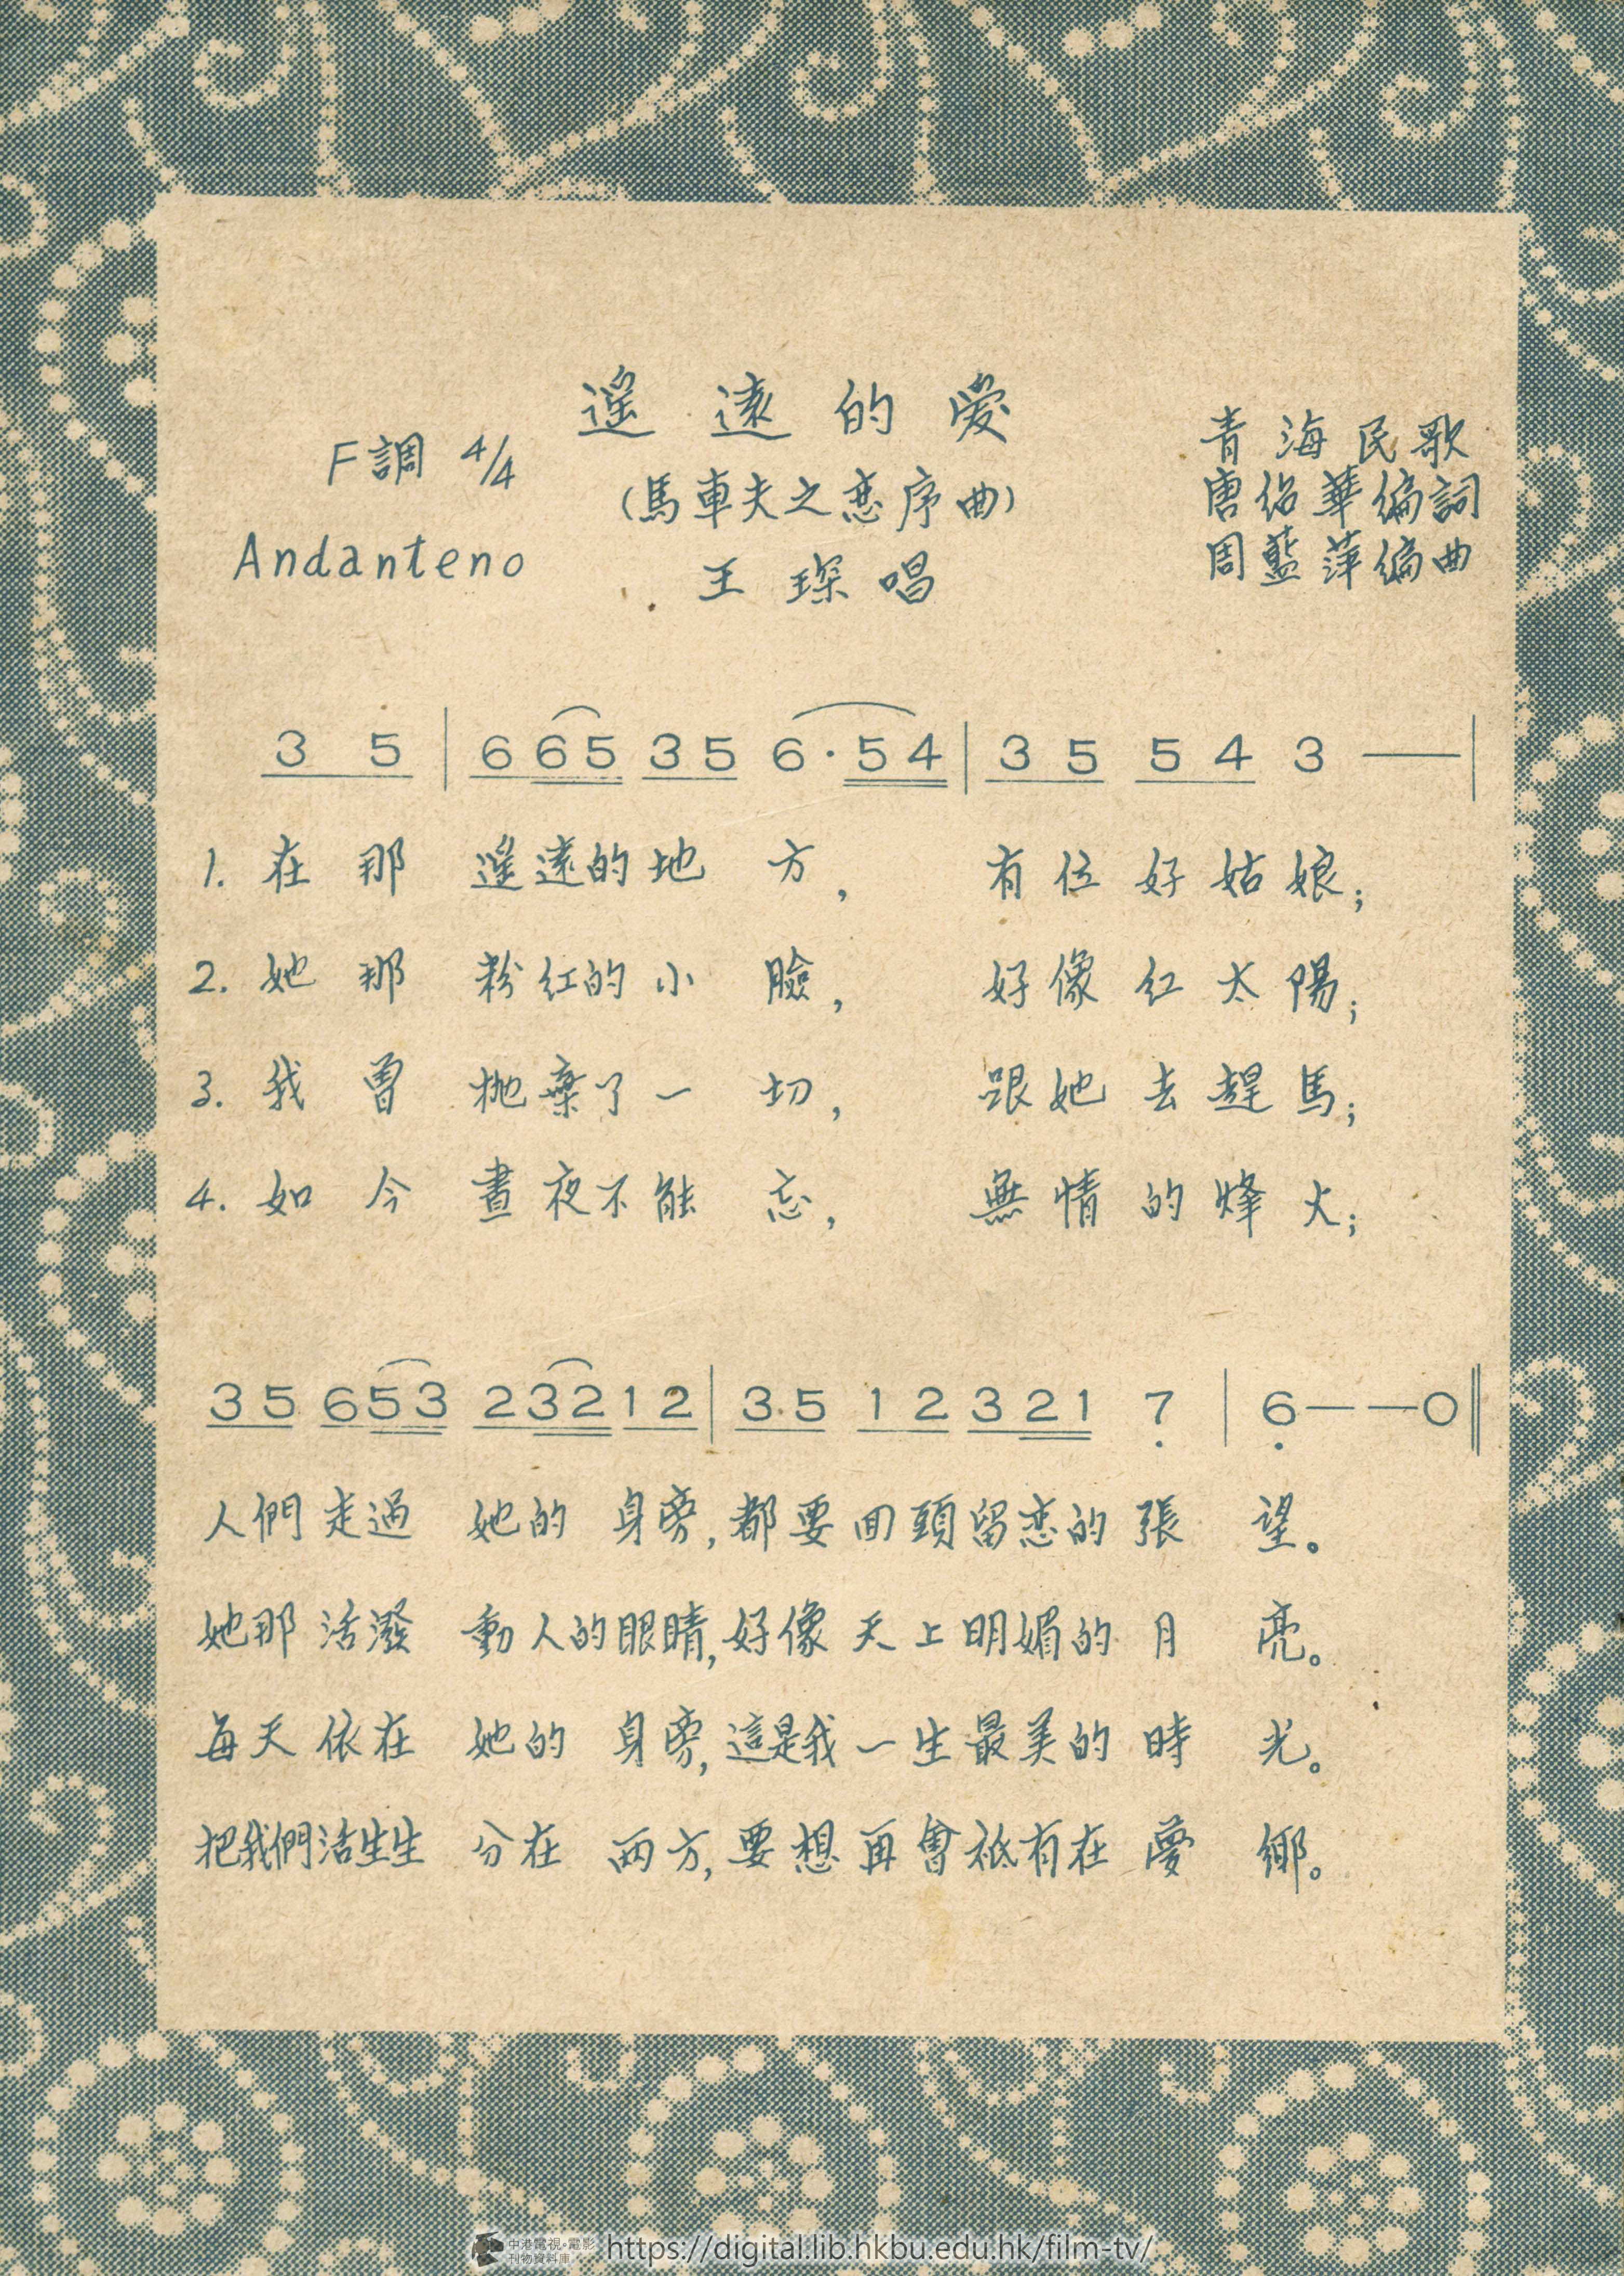 遙遠的愛
(馬車夫之戀序曲)
王琛唱
F調 4/4
Andanteno
青海民歌
唐紹華編詞
周藍萍編曲
3 5 | 6 6 5 3 5 6 · 5 4 | 3 5 5 4 3 — |
1. 在那遙遠的地方，有位好姑娘；
2. 她那粉紅的小臉，好像紅太陽；
3. 我曾拋棄了一切，跟她去趕馬；
4. 如今晝夜不能忘，無情的烽火；
3 5 6 5 3 2 3 2 1 2 | 3 5 1 2 3 2 1 7̣ | 6̣ — — 0 ‖
人們走過她的身旁，都要回頭留戀的張望。
她那活潑動人的眼睛，好像天上明媚的月亮。
每天依在她的身旁，這是我一生最美的時光。
把我們活生生分在兩方，要想再會祇有在夢鄉。
中港電視·電影
刊物資料庫
https://digital.lib.hkbu.edu.hk/film-tv/